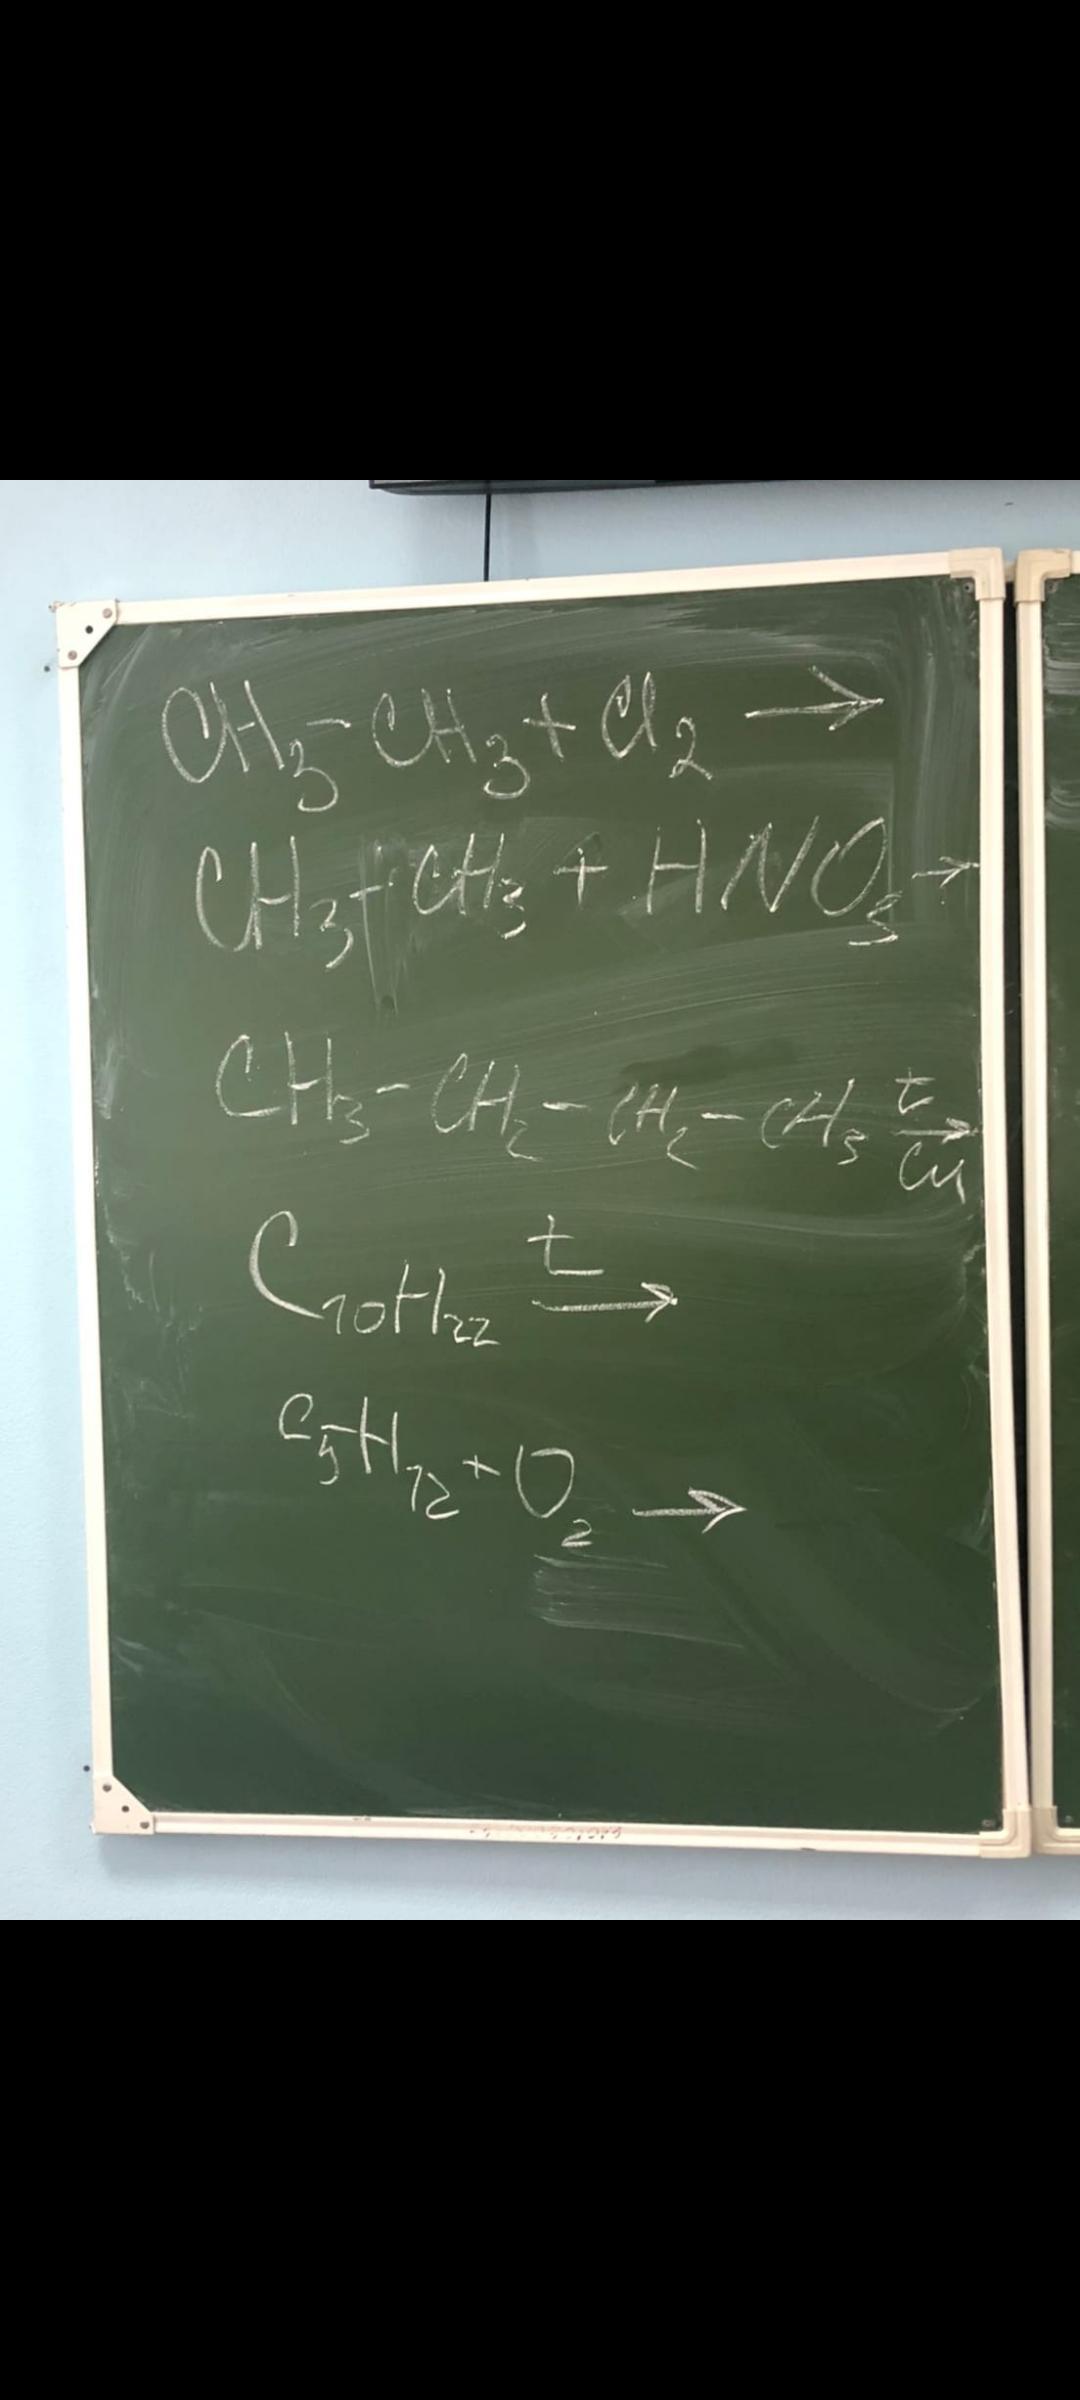 CH₃ – CH₃ + Cl₂ →
CH₃ – CH₃ + HNO₃ →
CH₃ – CH₂ – CH₂ – CH₃ t → Cu
C₁₀H₂₂ t →
C₅H₁₂ + O₂ →